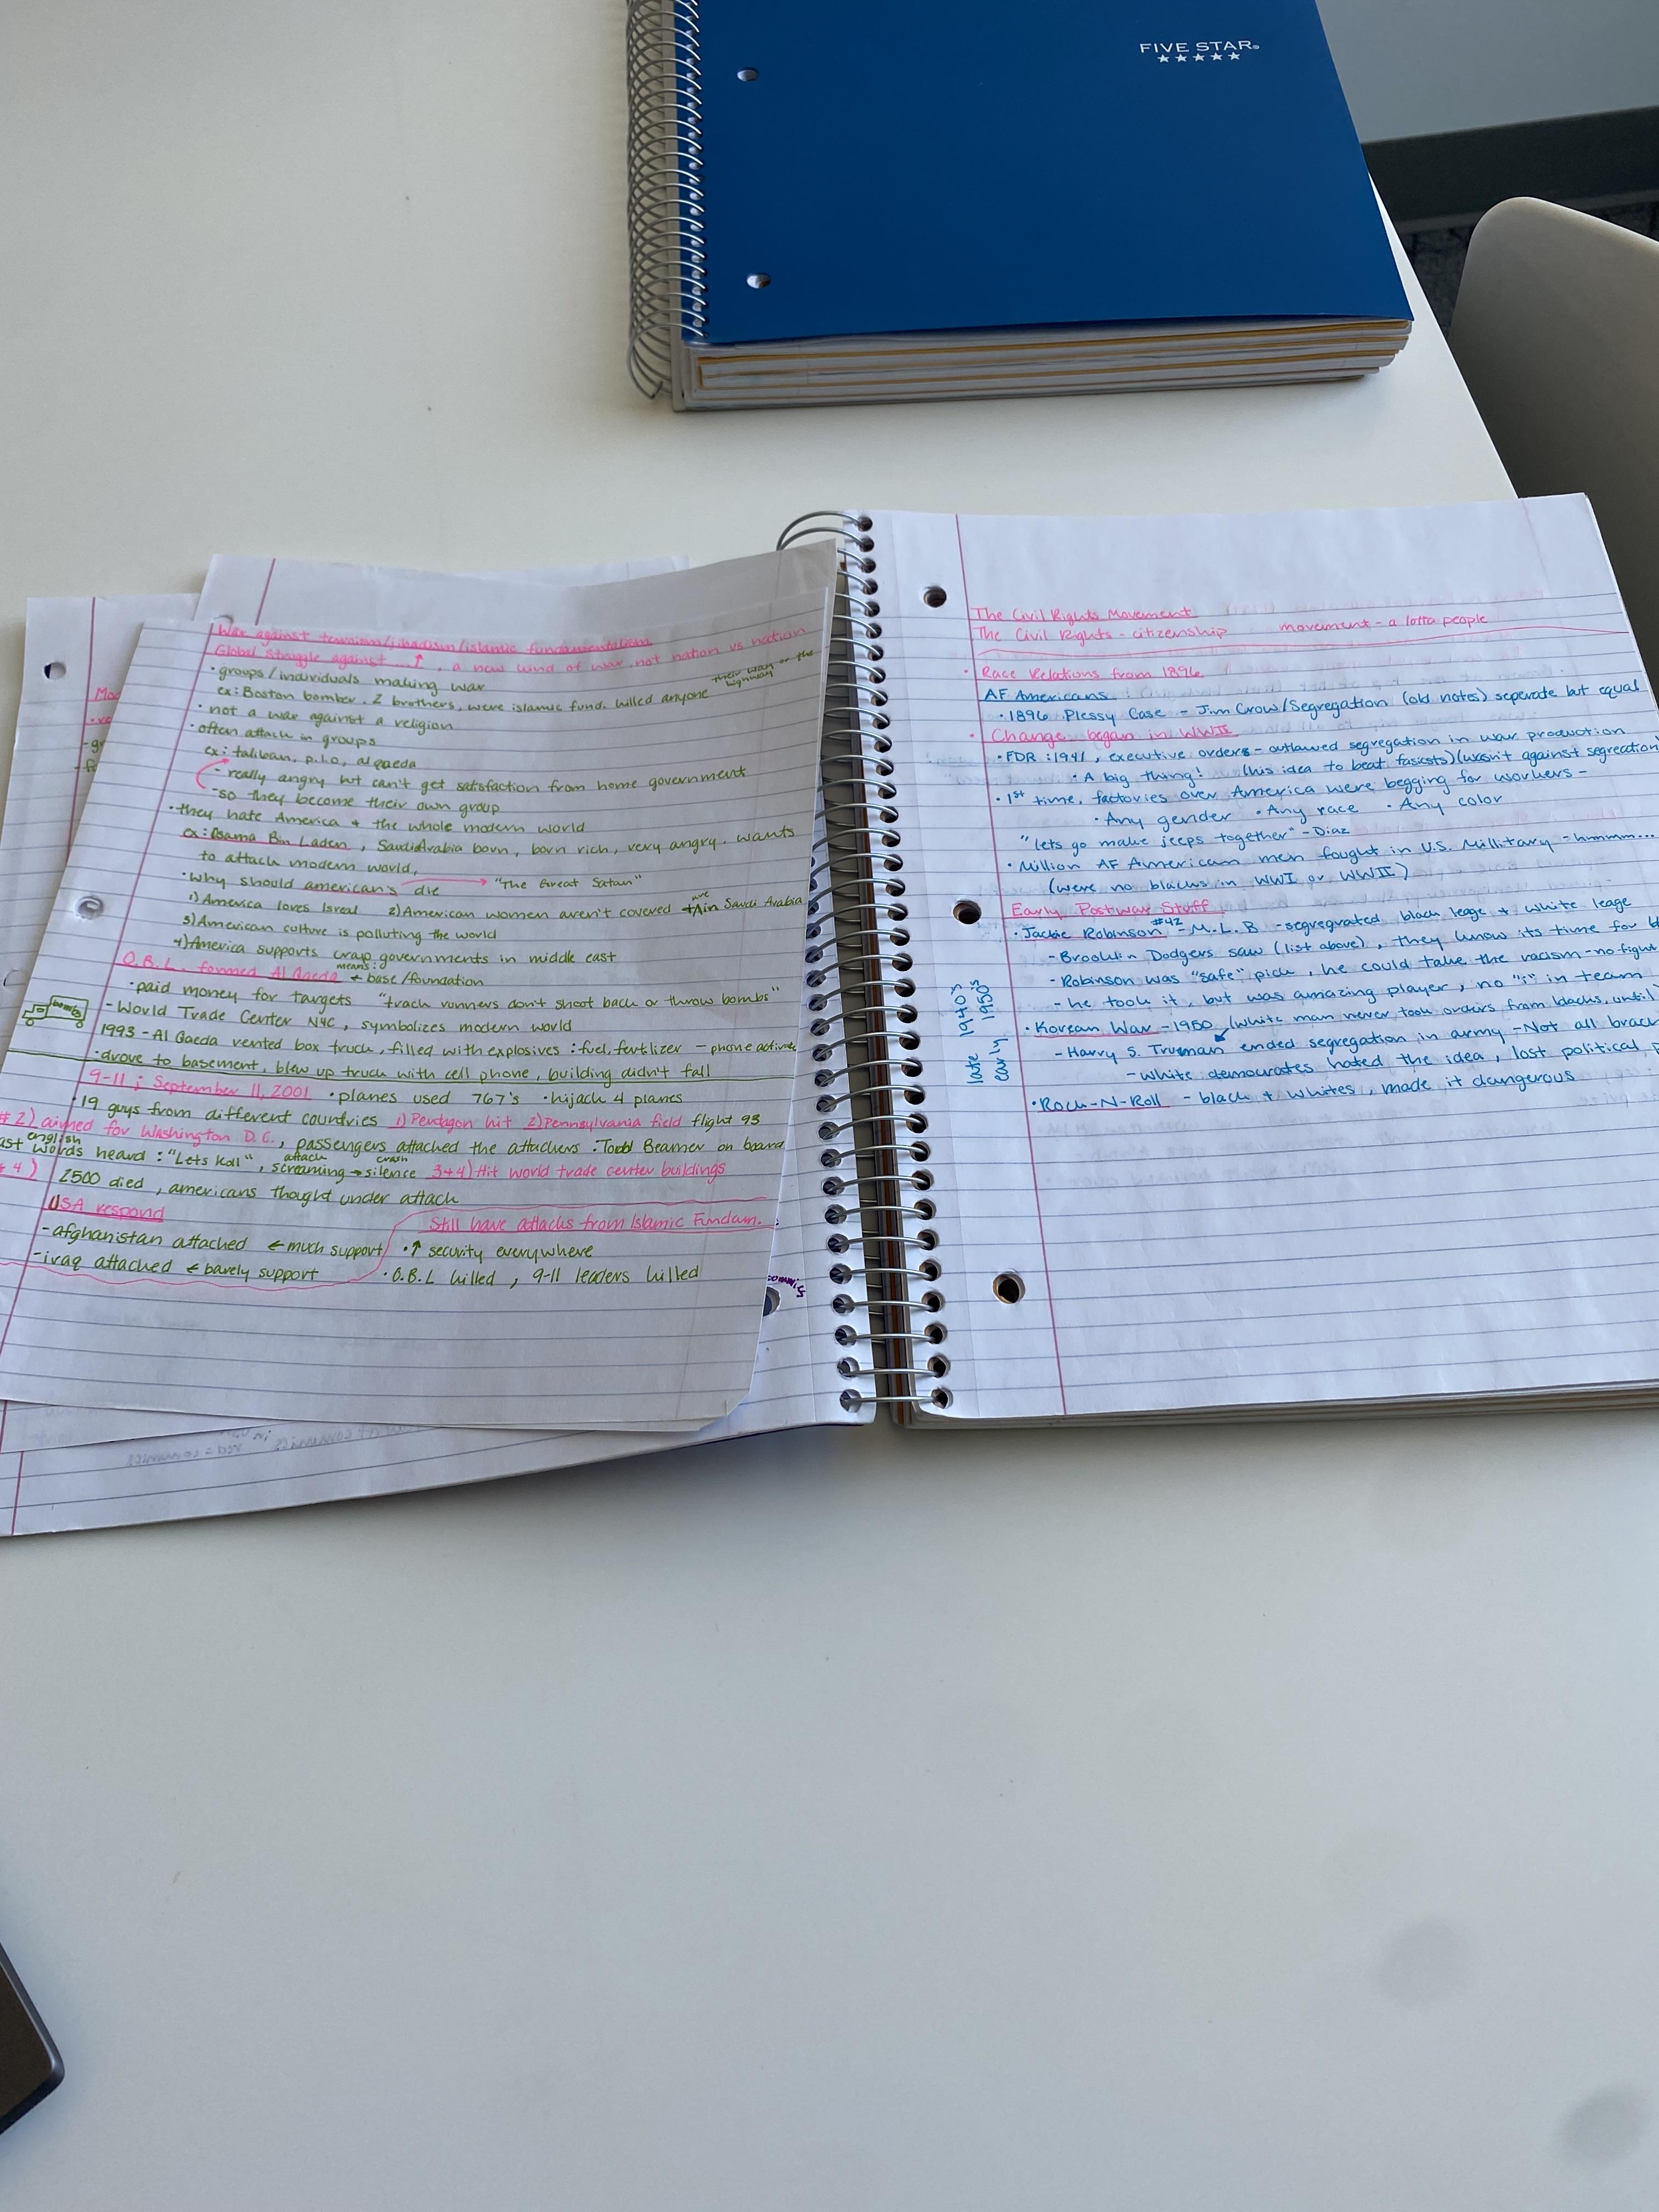 FIVE STAR®
War against terrorism/jihadism/islamic fundamentalism
Global Struggle against ...↑, a new kind of war, not nation vs nation
• groups/individuals making war
their way or the highway
ex: Boston bomber, 2 brothers, were islamic fund, killed anyone
• not a war against a religion
• often attack in groups
ex: taliban, p.l.o, al qaeda
- really angry but can't get satisfaction from home government
- so they become their own group
• they hate America + the whole modern world
ex: Osama Bin Laden, Saudi Arabia born, born rich, very angry, wants
to attack modern world,
• why should american's die → "The Great Satan"
1) America loves Isreal 2) American women aren't covered in Saudi Arabia
3) American culture is polluting the world
4) America supports crap governments in middle east
O.B.L. formed Al Qaeda means: ← base/foundation
• paid money for targets "track runners don't shoot back or throw bombs"
- World Trade Center NYC, symbolizes modern world
bombs
1993 - Al Qaeda rented box truck, filled with explosives: fuel, fertilizer - phone activate
• drove to basement, blew up truck with cell phone, building didn't fall
9-11; September 11, 2001 • planes used 767's • hijack 4 planes
• 19 guys from different countries 1) Pentagon hit 2) Pennsylvania field flight 93
#2) aimed for Washington D.C., passengers attacked the attackers: Todd Beamer on board
ast english words heard: "Lets Roll", attack screaming → crash silence 3+4) Hit world trade center buildings
4) 2500 died, americans thought under attack
USA respond
Still have attacks from Islamic Fundam.
- afghanistan attacked ← much support • ↑ security everywhere
- iraq attacked ← barely support • O.B.L killed, 9-11 leaders killed
The Civil Rights Movement
The Civil Rights - citizenship movement - a lotta people
• Race Relations from 1896
AF Americans:
• 1896 Plessy Case - Jim Crow/Segregation (old notes) seperate but equal
• Change began in WWII
• FDR: 1941, executive orders - outlawed segregation in war production
• A big thing! (his idea to beat fasists) (wasn't against segrecation)
• 1st time, factories over America were begging for workers -
• Any gender • Any race • Any color
"lets go make jeeps together" - Diaz
• Million AF American men fought in U.S. Millitary - hmmm...
(were no blacks in WWI or WWII)
Early Postwar Stuff
• Jackie Robinson #42 - M.L.B - segregrated black leage + white leage
- Brooklin Dodgers saw (list above), they know its time for bl
- Robinson was "safe" pick, he could take the racism - no fight
- he took it, but was amazing player, no "i" in team
late 1940's
early 1950's
• Korean War - 1950 (white man never took orders from blacks, until)
- Harry S. Truman ended segregation in army - Not all
- white democrates hated the idea, lost political p
• Rock-N-Roll - black + whites, made it dangerous